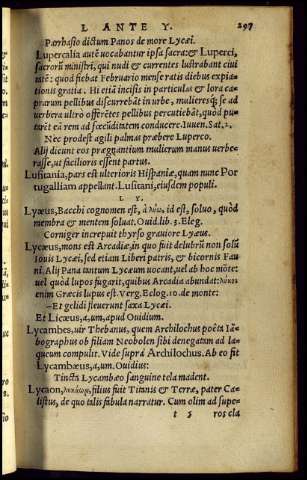 L ANTE Y. 297
Parrhasio dictum Panos de more Lycæi.
Lupercalia autē vocabantur ipsa sacra: & Luperci,
sacrorū ministri, qui nudi & currentes lustrabant ciui
tatē: quod fiebat Februario mense ratis diebus expia-
tionis gratia. Hi etiā incisis in particulas & lora ca-
prarum pellibus discurrebāt in vrbe, mulieresq́; se ad
verbera ultrò offerētes pellibus percutiebāt, quòd pu-
tarēt eā rem ad fœcūditatem conducere. Iuuen. Sat. 2.
Nec prodest agili palmas præbere Luperco.
Alij dicunt eos prægnantium mulierum manus verbe-
rasse, ut facilioris essent partus.
Lusitania, pars est vlterioris Hispaniæ, quam nunc Por
tugalliam appellant. Lusitani, eiusdem populi.
L Y.
Lyæus, Bacchi cognomen est, à λύω, id est, soluo, quòd
membra & mentem soluat. Ouid. lib. 3. Eleg.
Corniger increpuit thyrso grauiore Lyæus.
Lycæus, mons est Arcadiæ, in quo fuit delubrū non solū
Iouis Lycæi, sed etiam Liberi patris, & bicornis Fau
ni. Alij Pana tantum Lycæum uocant, uel ab hoc mōte:
vel quòd lupos fugarit, quibus Arcadia abundat: λύκος
enim Græcis lupus est. Verg. Eclog. 10. de monte:
Et gelidi fleuerunt saxa Lycæi.
Et Licæus, a, um, apud Ouidium.
Lycambes, uir Thebanus, quem Archilochus poëta Iā-
bographus ob filiam Neobolen sibi denegatam ad la-
queum compulit. Vide suprà Archilochus. Ab eo fit
Lycambæus, a, um. Ouidius:
Tincta Lycambæo sanguine tela madent.
Lycaon, λυκάων, filius fuit Titanis & Terræ, pater Ca-
listus, de quo talis fabula narratur. Cum olim ad supe-
t 5 ros cla